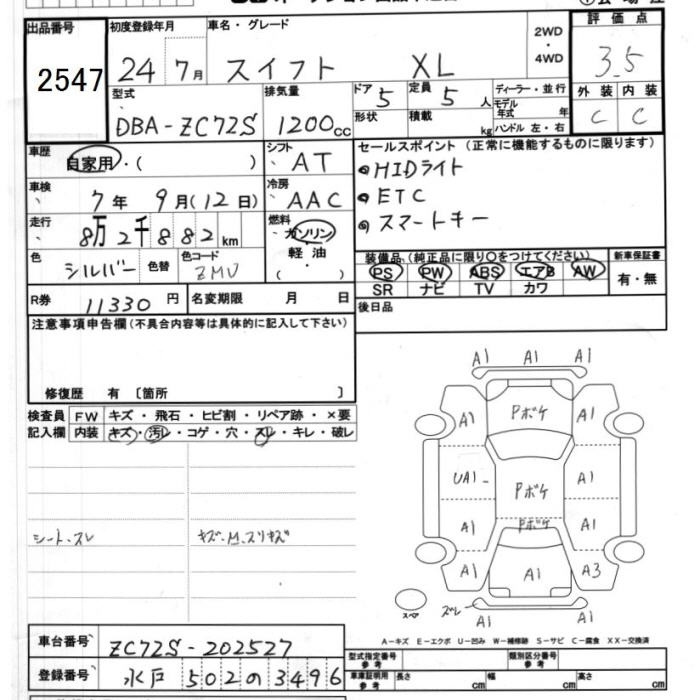 出品番号 2547
初度登録年月 24年 7月
車名・グレード スイフト XL
2WD・4WD
評価点 3.5
外装 C 内装 C
型式 DBA-ZC72S
排気量 1200cc
ドア 5 形状
定員 5人 積載 kg
ディーラー・並行
モデル年式 年
ハンドル 左・右
車歴 自家用・( )
シフト AT
車検 7年 9月(12日)
冷房 AAC
走行 8万2千882km
燃料 ガソリン・軽油・( )
色 シルバー 色替 色コード ZMU
R券 11330円 名変期限 月 日
セールスポイント(正常に機能するものに限ります)
HIDライト
ETC
スマートキー
装備品(純正品に限り○をつけてください) 新車保証書
PS PW ABS エアB AW 有・無
SR ナビ TV カワ
後日品
注意事項申告欄(不具合内容等は具体的に記入して下さい)
修復歴 有 〔箇所 〕
検査員記入欄
FW キズ・飛石・ヒビ割・リペア跡・×要
内装 キズ・汚レ・コゲ・穴・スレ・キレ・破レ
シート・スレ キズ・M.スリキズ
A1 A1 A1
A1 Pボケ A1
UA1 Pボケ A1
A1 Pボケ A1
A1 A1 A3
スペア ズレ A1 A1 A1
A−キズ E−エクボ U−凹み W−補修跡 S−サビ C−腐食 XX−交換済
車台番号 ZC72S-202527
登録番号 水戸 502の3496
型式指定番号 参考 類別区分番号 参考
車庫証明用 参考 長さ cm 幅 cm 高さ cm